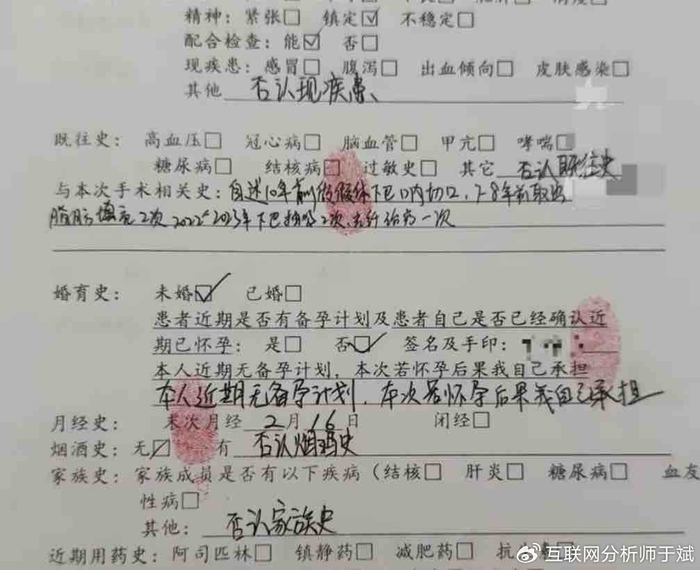 精神：紧张□ 镇定☑ 不稳定□
配合检查：能☑ 否□
现疾患：感冒□ 腹泻□ 出血倾向□ 皮肤感染□
其他 否认现疾患、
既往史：高血压□ 冠心病□ 脑血管□ 甲亢□ 哮喘□
糖尿病□ 结核病□ 过敏史□ 其它 否认既往史
与本次手术相关史：自述10年前假体下巴口内切口，7-8年前取出
脂肪填充2次 2022年 2023年下巴 2次 一次
婚育史：未婚☑ 已婚□
患者近期是否有备孕计划及患者自己是否已经确认近
期已怀孕：是□ 否☑ 签名及手印：
本人近期无备孕计划，本次若怀孕后果我自己承担
本人近期无备孕计划，本次若怀孕后果我自己承担
月经史：末次月经2月16日 闭经□
烟酒史：无☑ 有 否认烟酒史
家族史：家族成员是否有以下疾病（结核□ 肝炎□ 糖尿病□ 血友
性病□
其他：否认家族史
近期用药史：阿司匹林□ 镇静药□ 减肥药□ 抗
@互联网分析师于斌